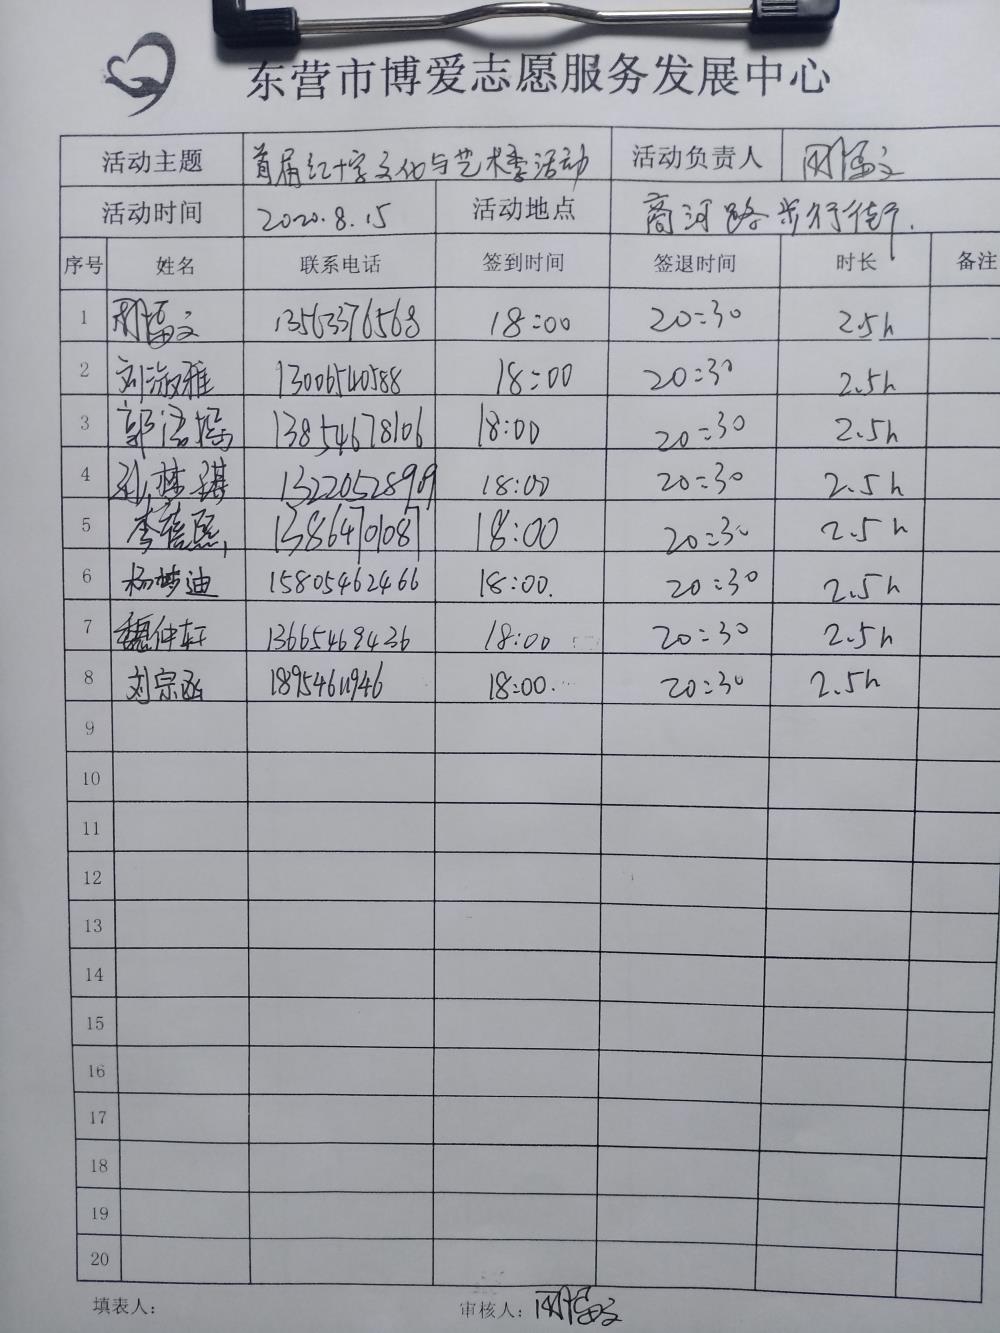 东营市博爱志愿服务发展中心
活动主题 首届红十字文化与艺术季活动 活动负责人 周福文
活动时间 2020.8.15 活动地点 商河路步行街.
序号 姓名 联系电话 签到时间 签退时间 时长 备注
1 周福文 13563376568 18:00 20:30 2.5h
2 刘淑雅 13006540588 18:00 20:30 2.5h
3 郭 13854678106 18:00 20:30 2.5h
4 孙梦琪 13220528909 18:00 20:30 2.5h
5 李蓓熙 13864701087 18:00 20:30 2.5h
6 杨梦迪 15805462466 18:00. 20:30 2.5h
7 魏仲轩 13665469436 18:00 20:30 2.5h
8 刘宗函 18954611946 18:00. 20:30 2.5h
9
10
11
12
13
14
15
16
17
18
19
20
填表人: 审核人: 周福文